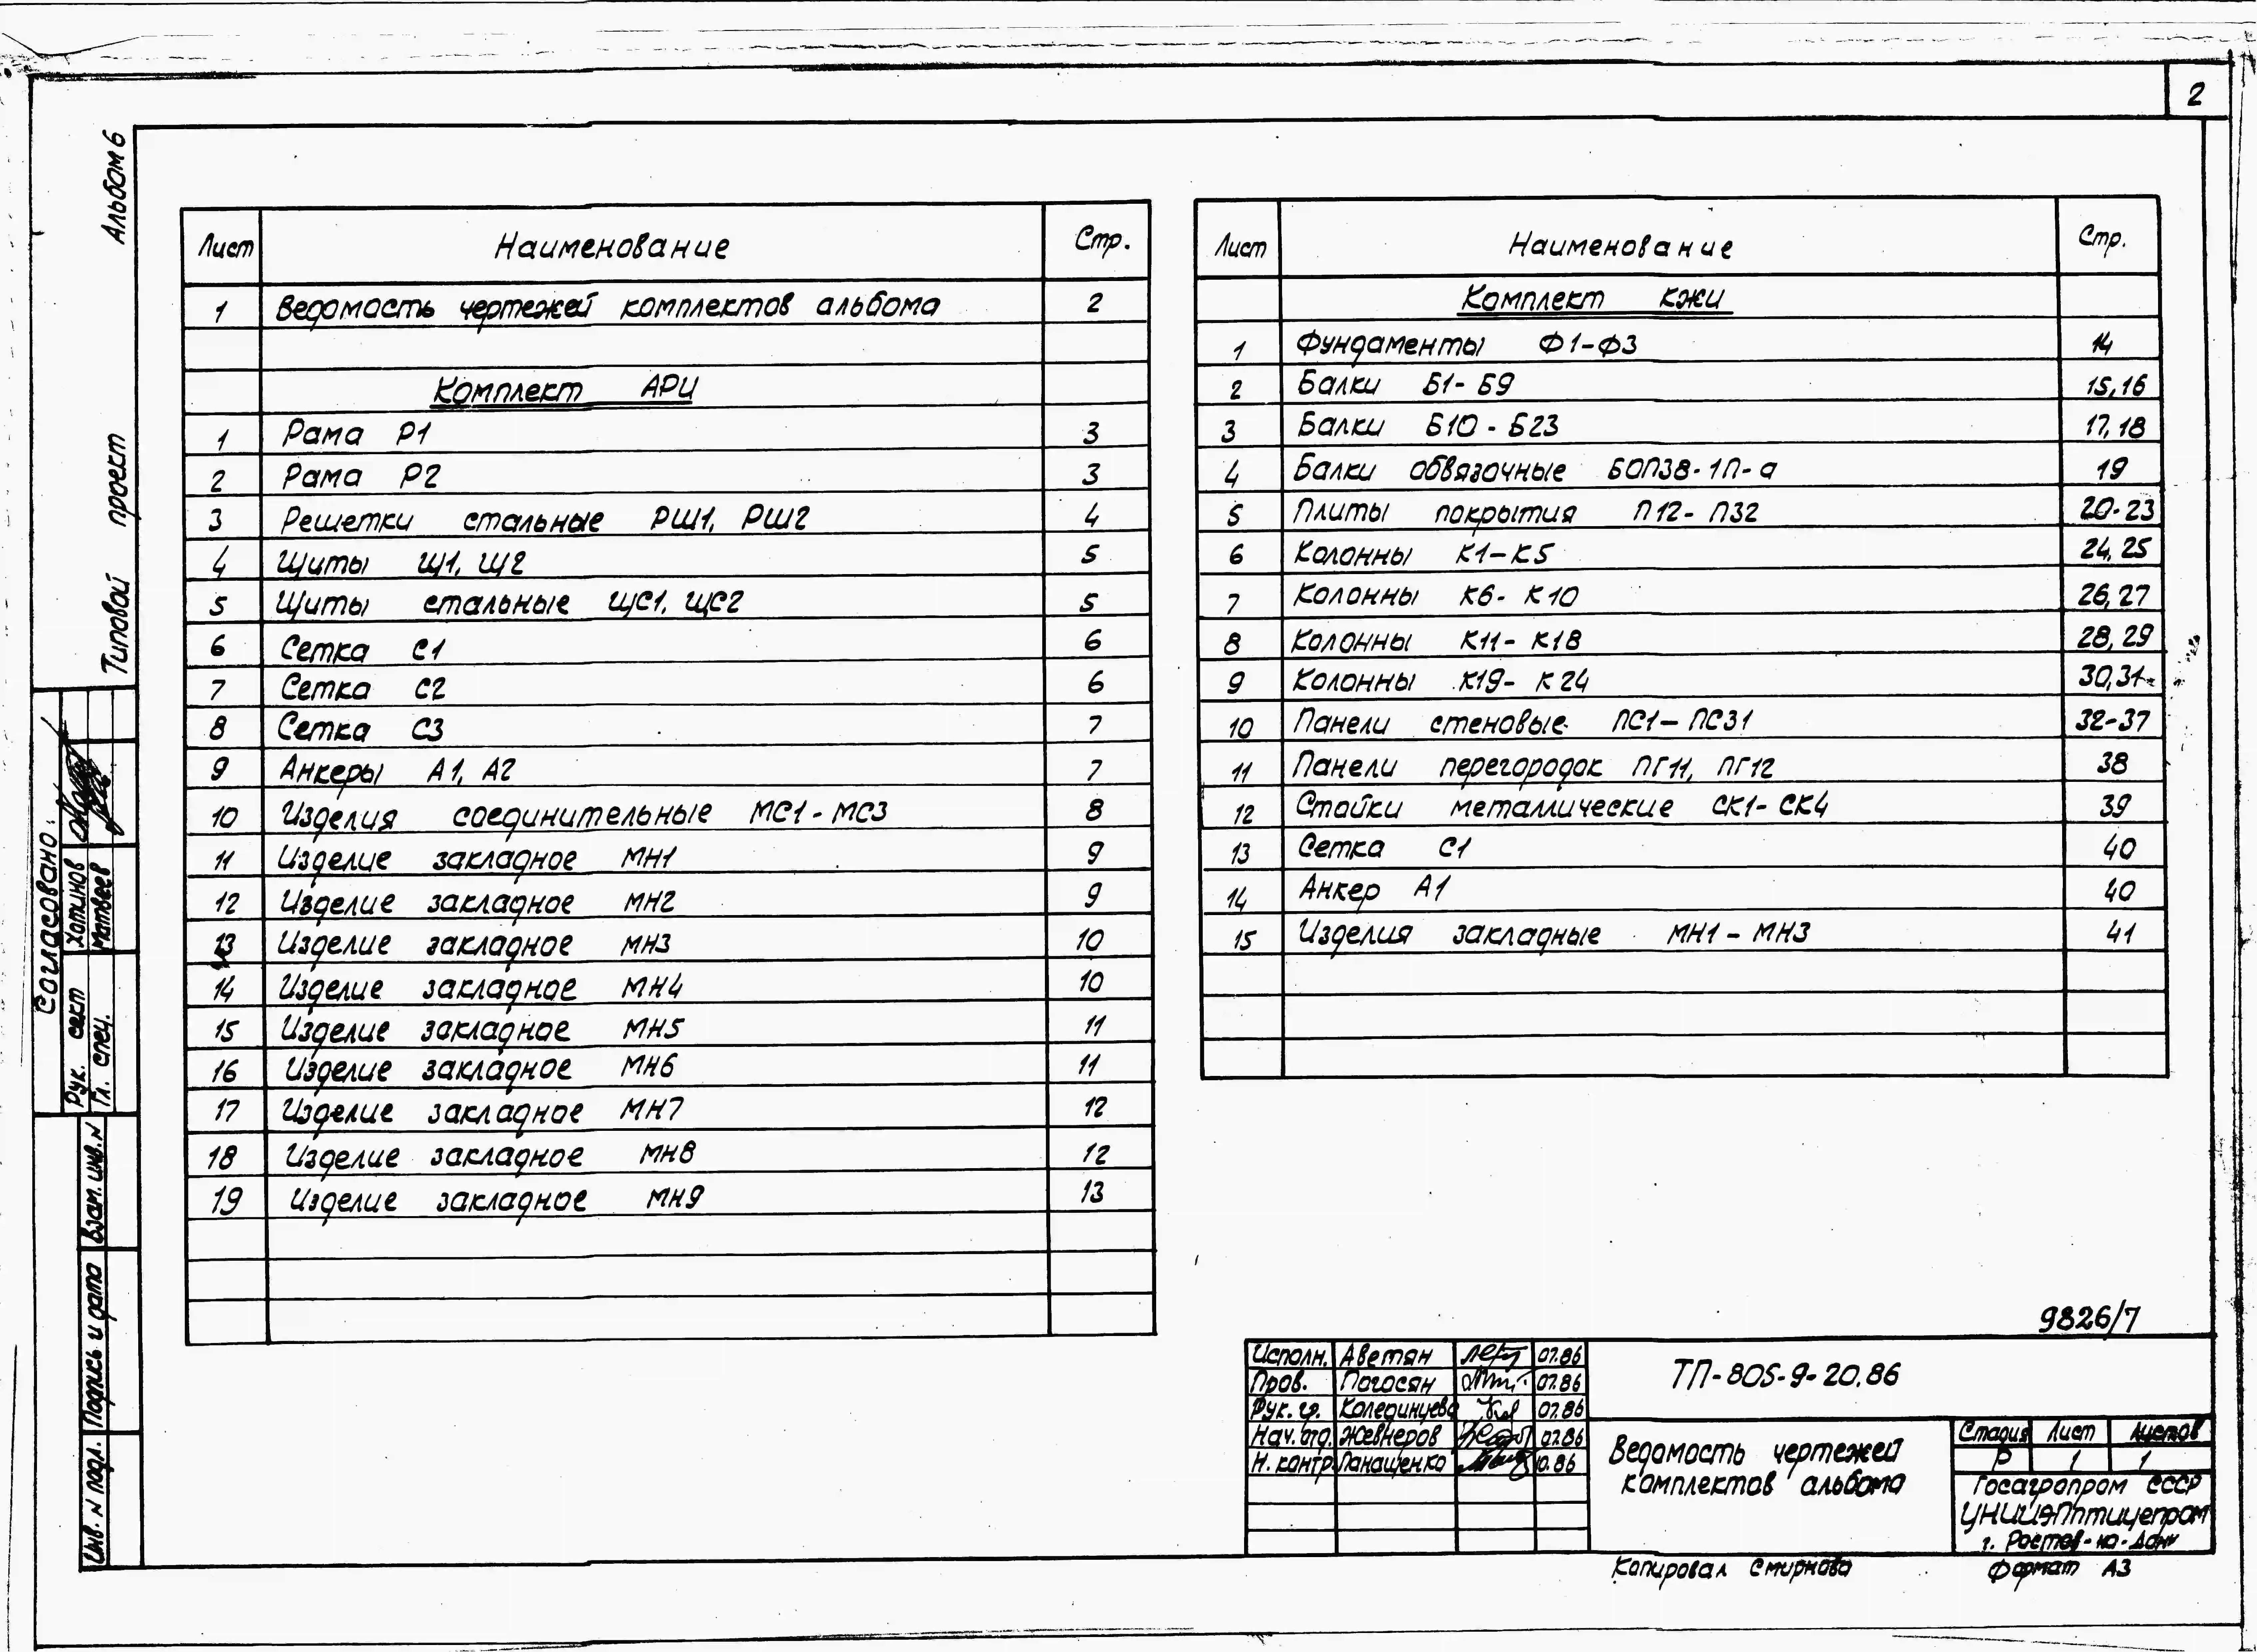 2
Альбом 6
Типовой проект
Лист Наименование Стр.
1 Ведомость чертежей комплектов альбома 2
Комплект АРИ
1 Рама Р1 3
2 Рама Р2 3
3 Решетки стальные РШ1, РШ2 4
4 Щиты Щ1, Щ2 5
5 Щиты стальные ЩС1, ЩС2 5
6 Сетка С1 6
7 Сетка С2 6
8 Сетка С3 7
9 Анкеры А1, А2 7
10 Изделия соединительные МС1-МС3 8
11 Изделие закладное МН1 9
12 Изделие закладное МН2 9
13 Изделие закладное МН3 10
14 Изделие закладное МН4 10
15 Изделие закладное МН5 11
16 Изделие закладное МН6 11
17 Изделие закладное МН7 12
18 Изделие закладное МН8 12
19 Изделие закладное МН9 13
Лист Наименование Стр.
Комплект КЖИ
1 Фундаменты Ф1-Ф3 14
2 Балки Б1-Б9 15,16
3 Балки Б10-Б23 17,18
4 Балки обвязочные БОП38-1П-а 19
5 Плиты покрытия П12-П32 20-23
6 Колонны К1-К5 24,25
7 Колонны К6-К10 26,27
8 Колонны К11-К18 28,29
9 Колонны К19-К24 30,31
10 Панели стеновые ПС1-ПС31 32-37
11 Панели перегородок ПГ11, ПГ12 38
12 Стойки металлические СК1-СК4 39
13 Сетка С1 40
14 Анкер А1 40
15 Изделия закладные МН1-МН3 41
Согласовано:
Рук. сект Хатинов
Гл. спец. Матвеев
Взам. инв. N
Подпись и дата
Инв. N подл.
9826/7
Исполн. Аветян 07.86
Пров. Погосян 07.86
Рук. гр. Колединцева 07.86
Нач. отд. Жевнеров 07.86
Н. контр. Панащенко 10.86
ТП-805-9-20.86
Ведомость чертежей
комплектов альбома
Стадия Лист Листов
Р 1 1
Госагропром СССР
ЦНИИЭПптицепром
г. Ростов-на-Дону
Копировал Смирнова Формат А3